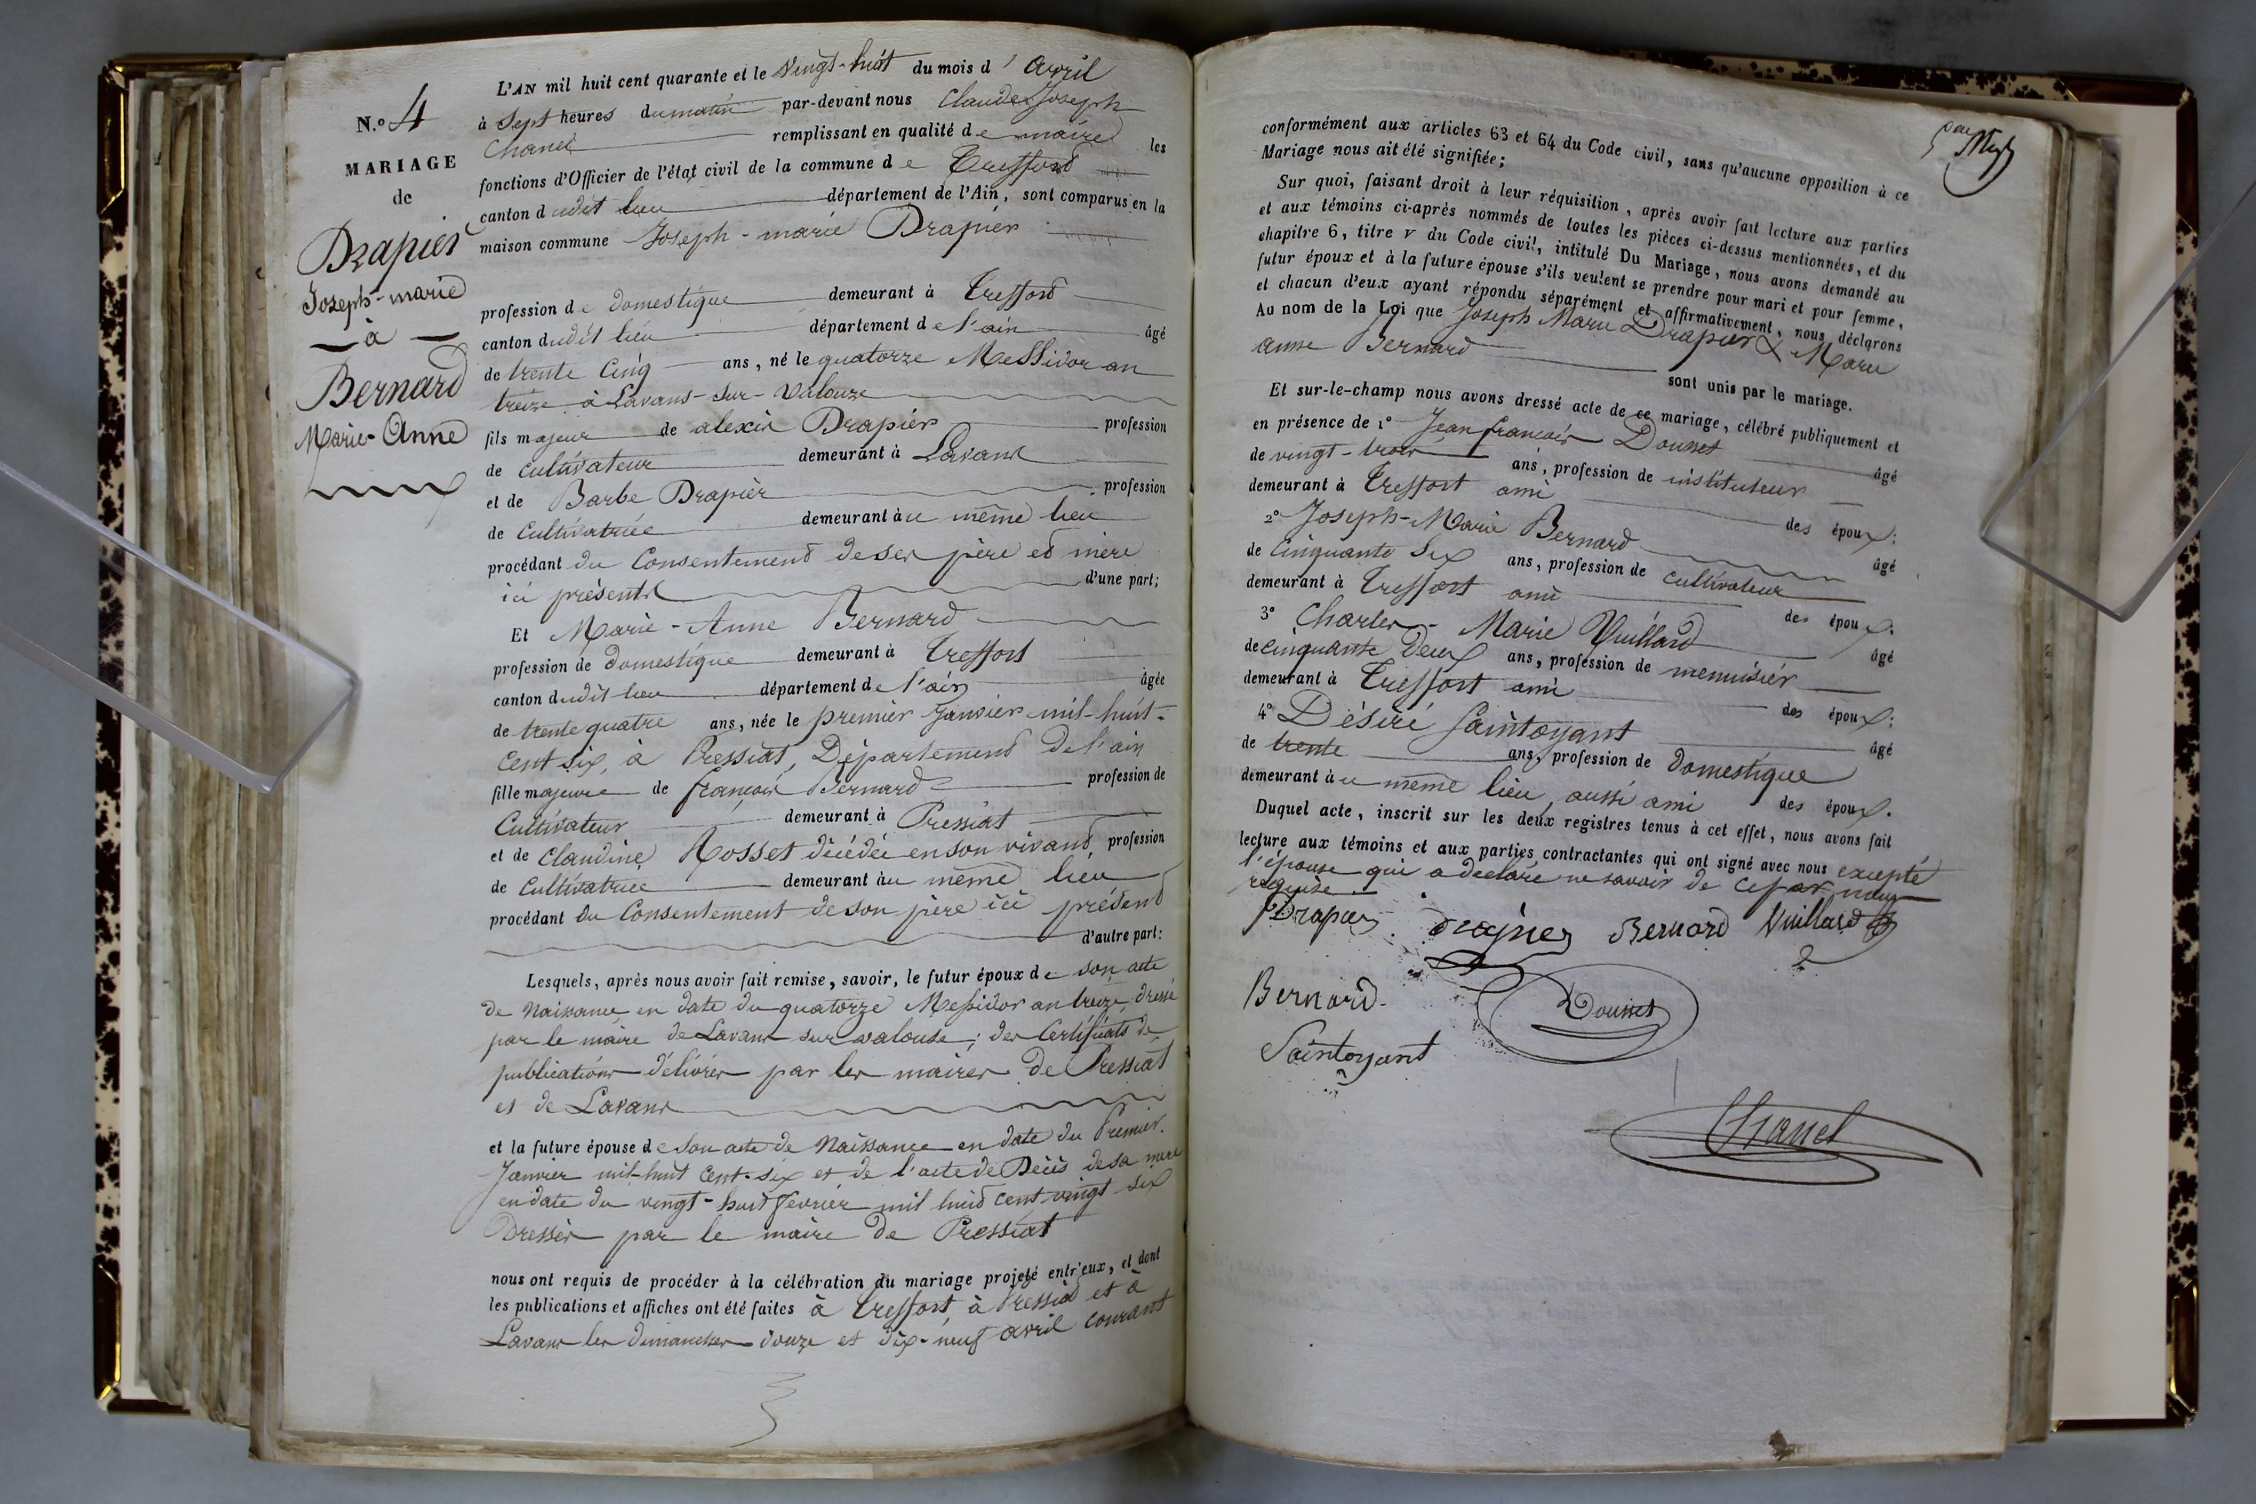 N.º 4
MARIAGE
de
Drapier
Joseph-marie
— à —
Bernard
Marie-Anne
L'AN mil huit cent quarante et le vingt-huit du mois d' avril
à Sept heures du matin par-devant nous Claude Joseph
Chanel remplissant en qualité de maire les
fonctions d'Officier de l'état civil de la commune de Treffort
canton dudit lieu département de l'Ain, sont comparus en la
maison commune Joseph-marie Drapier
profession de domestique demeurant à Treffort
canton dudit lieu département de l'ain âgé
de trente cinq ans, né le quatorze Messidor an
treize à Lavans-sur-Valouze
fils majeur de alexis Drapier profession
de cultivateur demeurant à Lavans
et de Barbe Drapier profession
de cultivatrice demeurant au même lieu
procédant du Consentement de ses père et mère
ici présents d'une part;
Et Marie-Anne Bernard
profession de domestique demeurant à Treffort
canton dudit lieu département de l'ain âgée
de trente quatre ans, née le premier Janvier mil-huit-
Cent six, à Pressiat, Département de l'ain
fille majeure de françois Bernard profession de
Cultivateur demeurant à Pressiat
et de Claudine Rosset décédée en son vivant profession
de Cultivatrice demeurant au même lieu
procédant du Consentement de son père ici présent
d'autre part:
Lesquels, après nous avoir fait remise, savoir, le futur époux de son acte
de Naissance en date du quatorze Messidor an treize dressé
par le maire de Lavans sur valouse; des Certificats de
publications délivrés par les maires de Pressiat
et de Lavans
et la future épouse de son acte de Naissance en date du Premier
Janvier mil-huit Cent-six et de l'acte de Décès de sa mère
en date du vingt-huit février mil huit cent vingt-six
Dressés par le maire de Pressiat
nous ont requis de procéder à la célébration du mariage projeté entr'eux, et dont
les publications et affiches ont été faites à Treffort, à Pressiat et à
Lavans les dimanches douze et dix-neuf avril courant
conformément aux articles 63 et 64 du Code civil, sans qu'aucune opposition à ce
Mariage nous ait été signifiée;
Sur quoi, faisant droit à leur réquisition, après avoir fait lecture aux parties
et aux témoins ci-après nommés de toutes les pièces ci-dessus mentionnées, et du
chapitre 6, titre V du Code civil, intitulé Du Mariage, nous avons demandé au
futur époux et à la future épouse s'ils veulent se prendre pour mari et pour femme,
et chacun d'eux ayant répondu séparément et affirmativement, nous déclarons
Au nom de la Loi que Joseph Marie Drapier & Marie
anne Bernard sont unis par le mariage.
Et sur-le-champ nous avons dressé acte de ce mariage, célébré publiquement et
en présence de 1º Jean françois Dousset âgé
de vingt-trois ans, profession de instituteur
demeurant à Treffort ami des époux:
2º Joseph-Marie Bernard âgé
de Cinquante Six ans, profession de cultivateur
demeurant à Treffort ami des époux:
3º Charles-Marie Vuillard âgé
de cinquante Deux ans, profession de menuisier
demeurant à Treffort ami des époux:
4º Désiré Saintoyant âgé
de trente ans, profession de domestique
demeurant au même lieu, aussi ami des époux.
Duquel acte, inscrit sur les deux registres tenus à cet effet, nous avons fait
lecture aux témoins et aux parties contractantes qui ont signé avec nous excepté
l'épouse qui a déclaré ne savoir de ce par nous
requise
Drapier Drapier Bernard Vuillard
Bernard Dousset
Saintoyant
Chanel